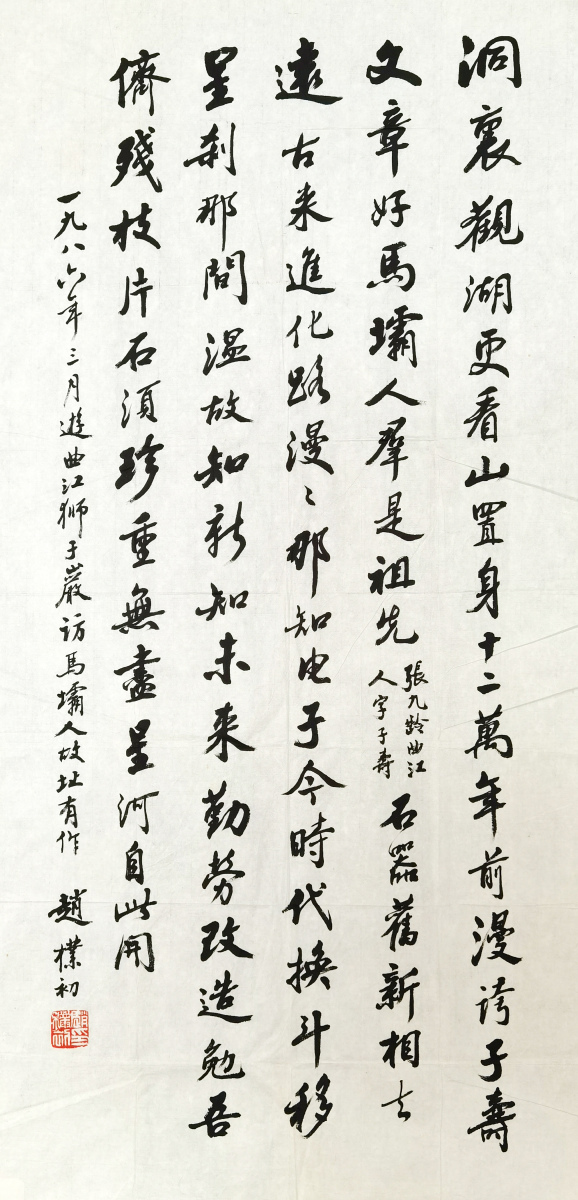 洞裏觀湖更看山置身十二萬年前漫誇子壽
文章好馬壩人羣是祖先張九齡曲江人字子壽石器舊新相去
遠古来進化路漫〻那知电子今時代換斗移
星刹那間温故知新知未来勤勞改造勉吾
儕殘枝片石須珍重無盡星河自此開
一九八六年三月遊曲江獅子巖訪馬壩人故址有作 趙樸初
趙樸初